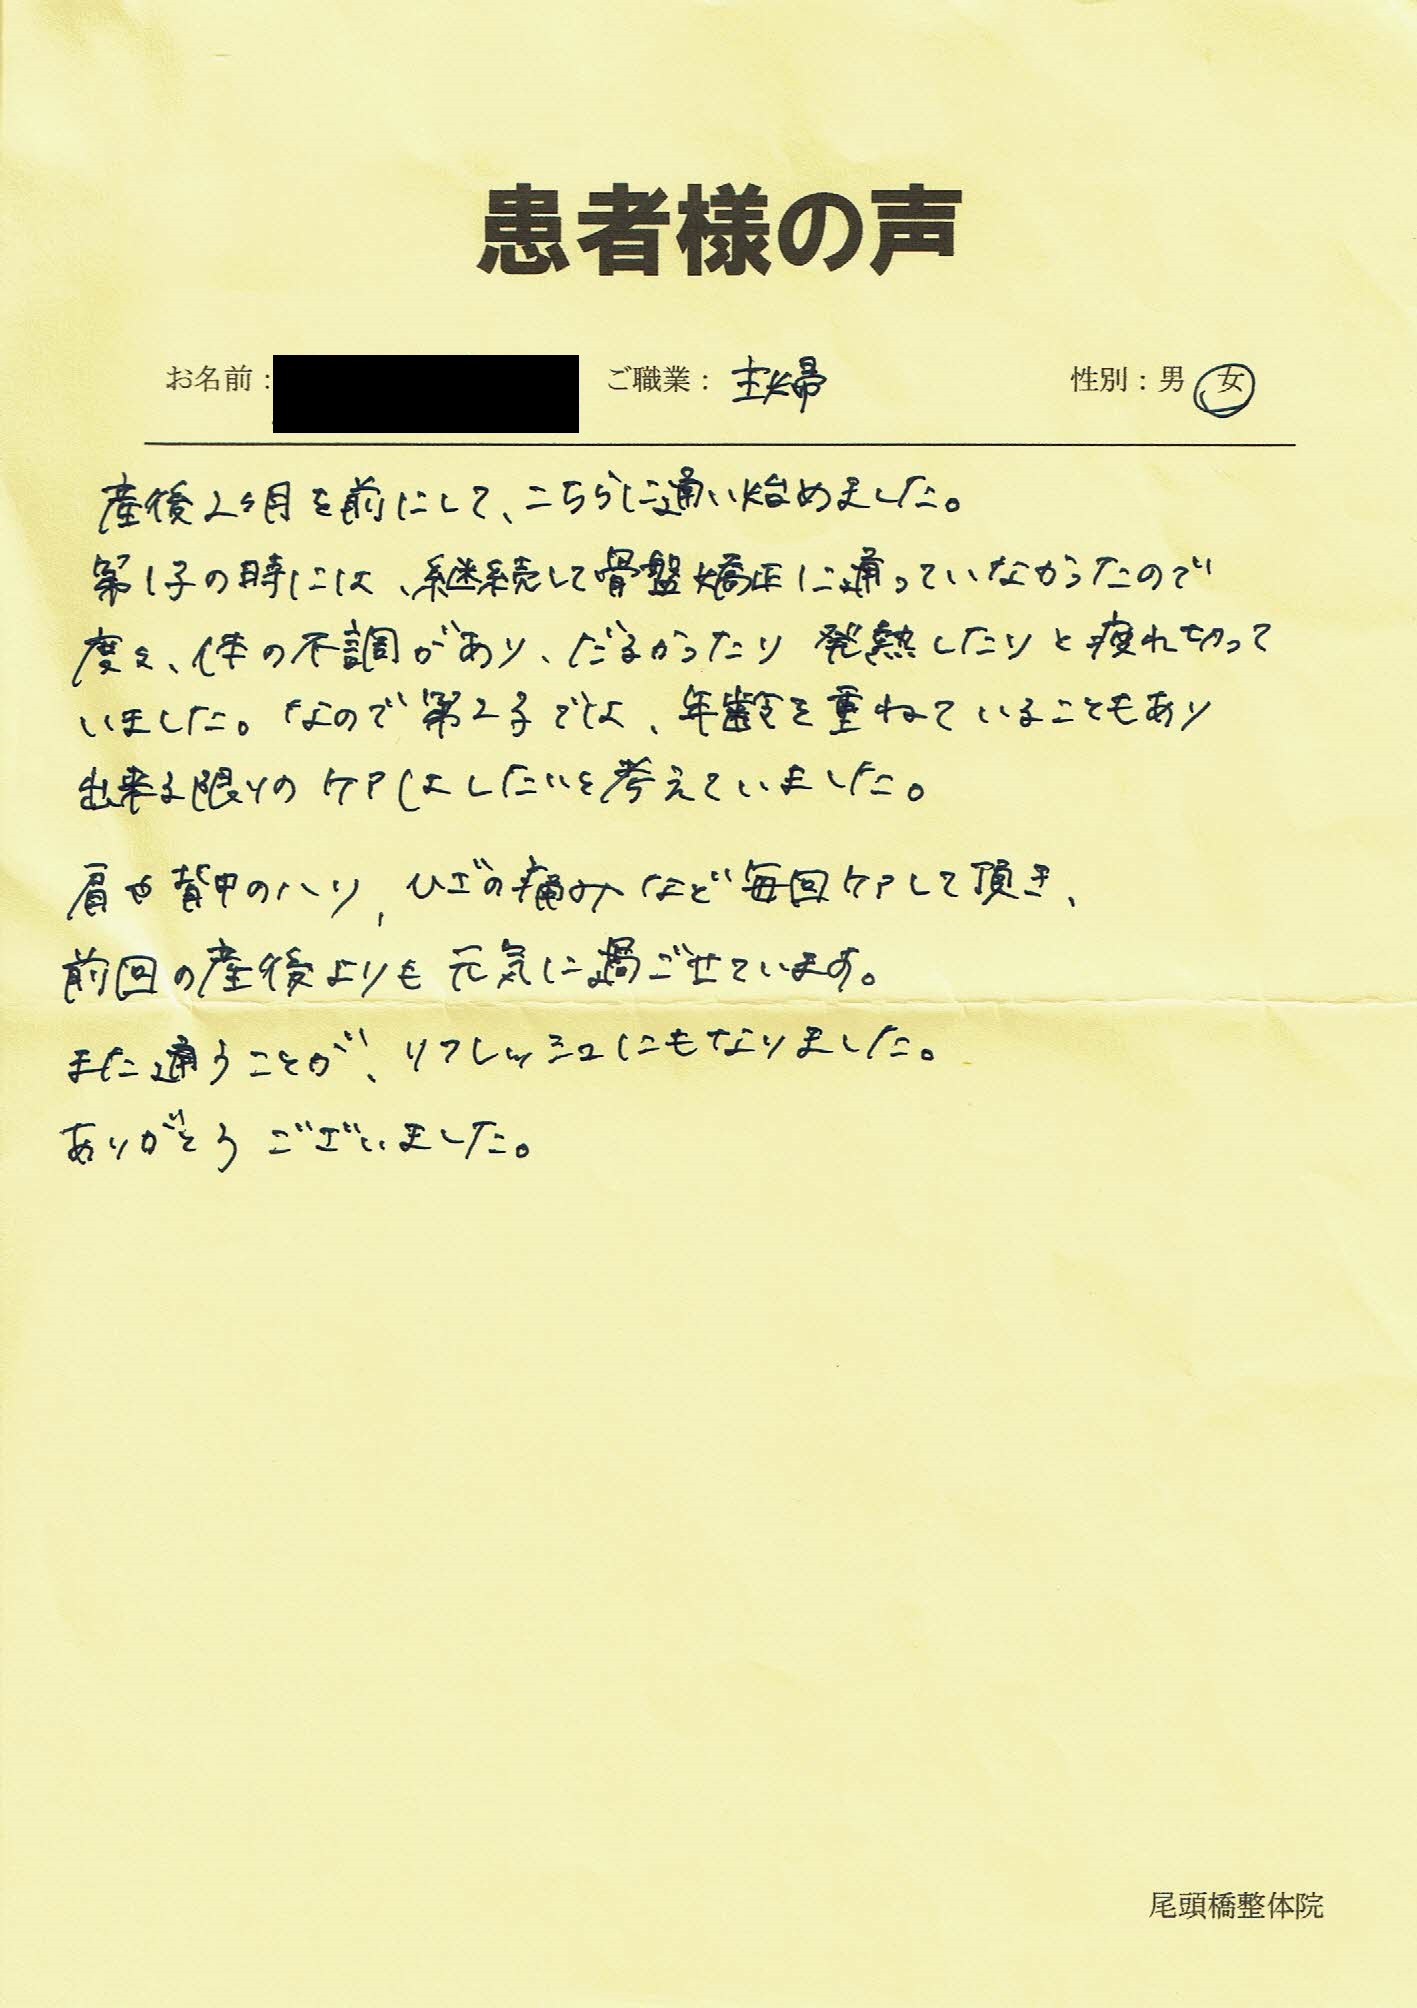 患者様の声
お名前： ご職業：主婦 性別：男 女
産後2ヶ月を前にして、こちらに通い始めました。
第1子の時には、継続して骨盤矯正に通っていなかったので
度々、体の不調があり、だるかったり 発熱したりと疲れ切って
いました。なので第2子では、年齢を重ねていることもあり
出来る限りのケアはしたいと考えていました。
肩や背中のハリ、ひざの痛みなど毎回ケアして頂き、
前回の産後よりも元気に過ごせています。
また通うことが、リフレッシュにもなりました。
ありがとうございました。
尾頭橋整体院